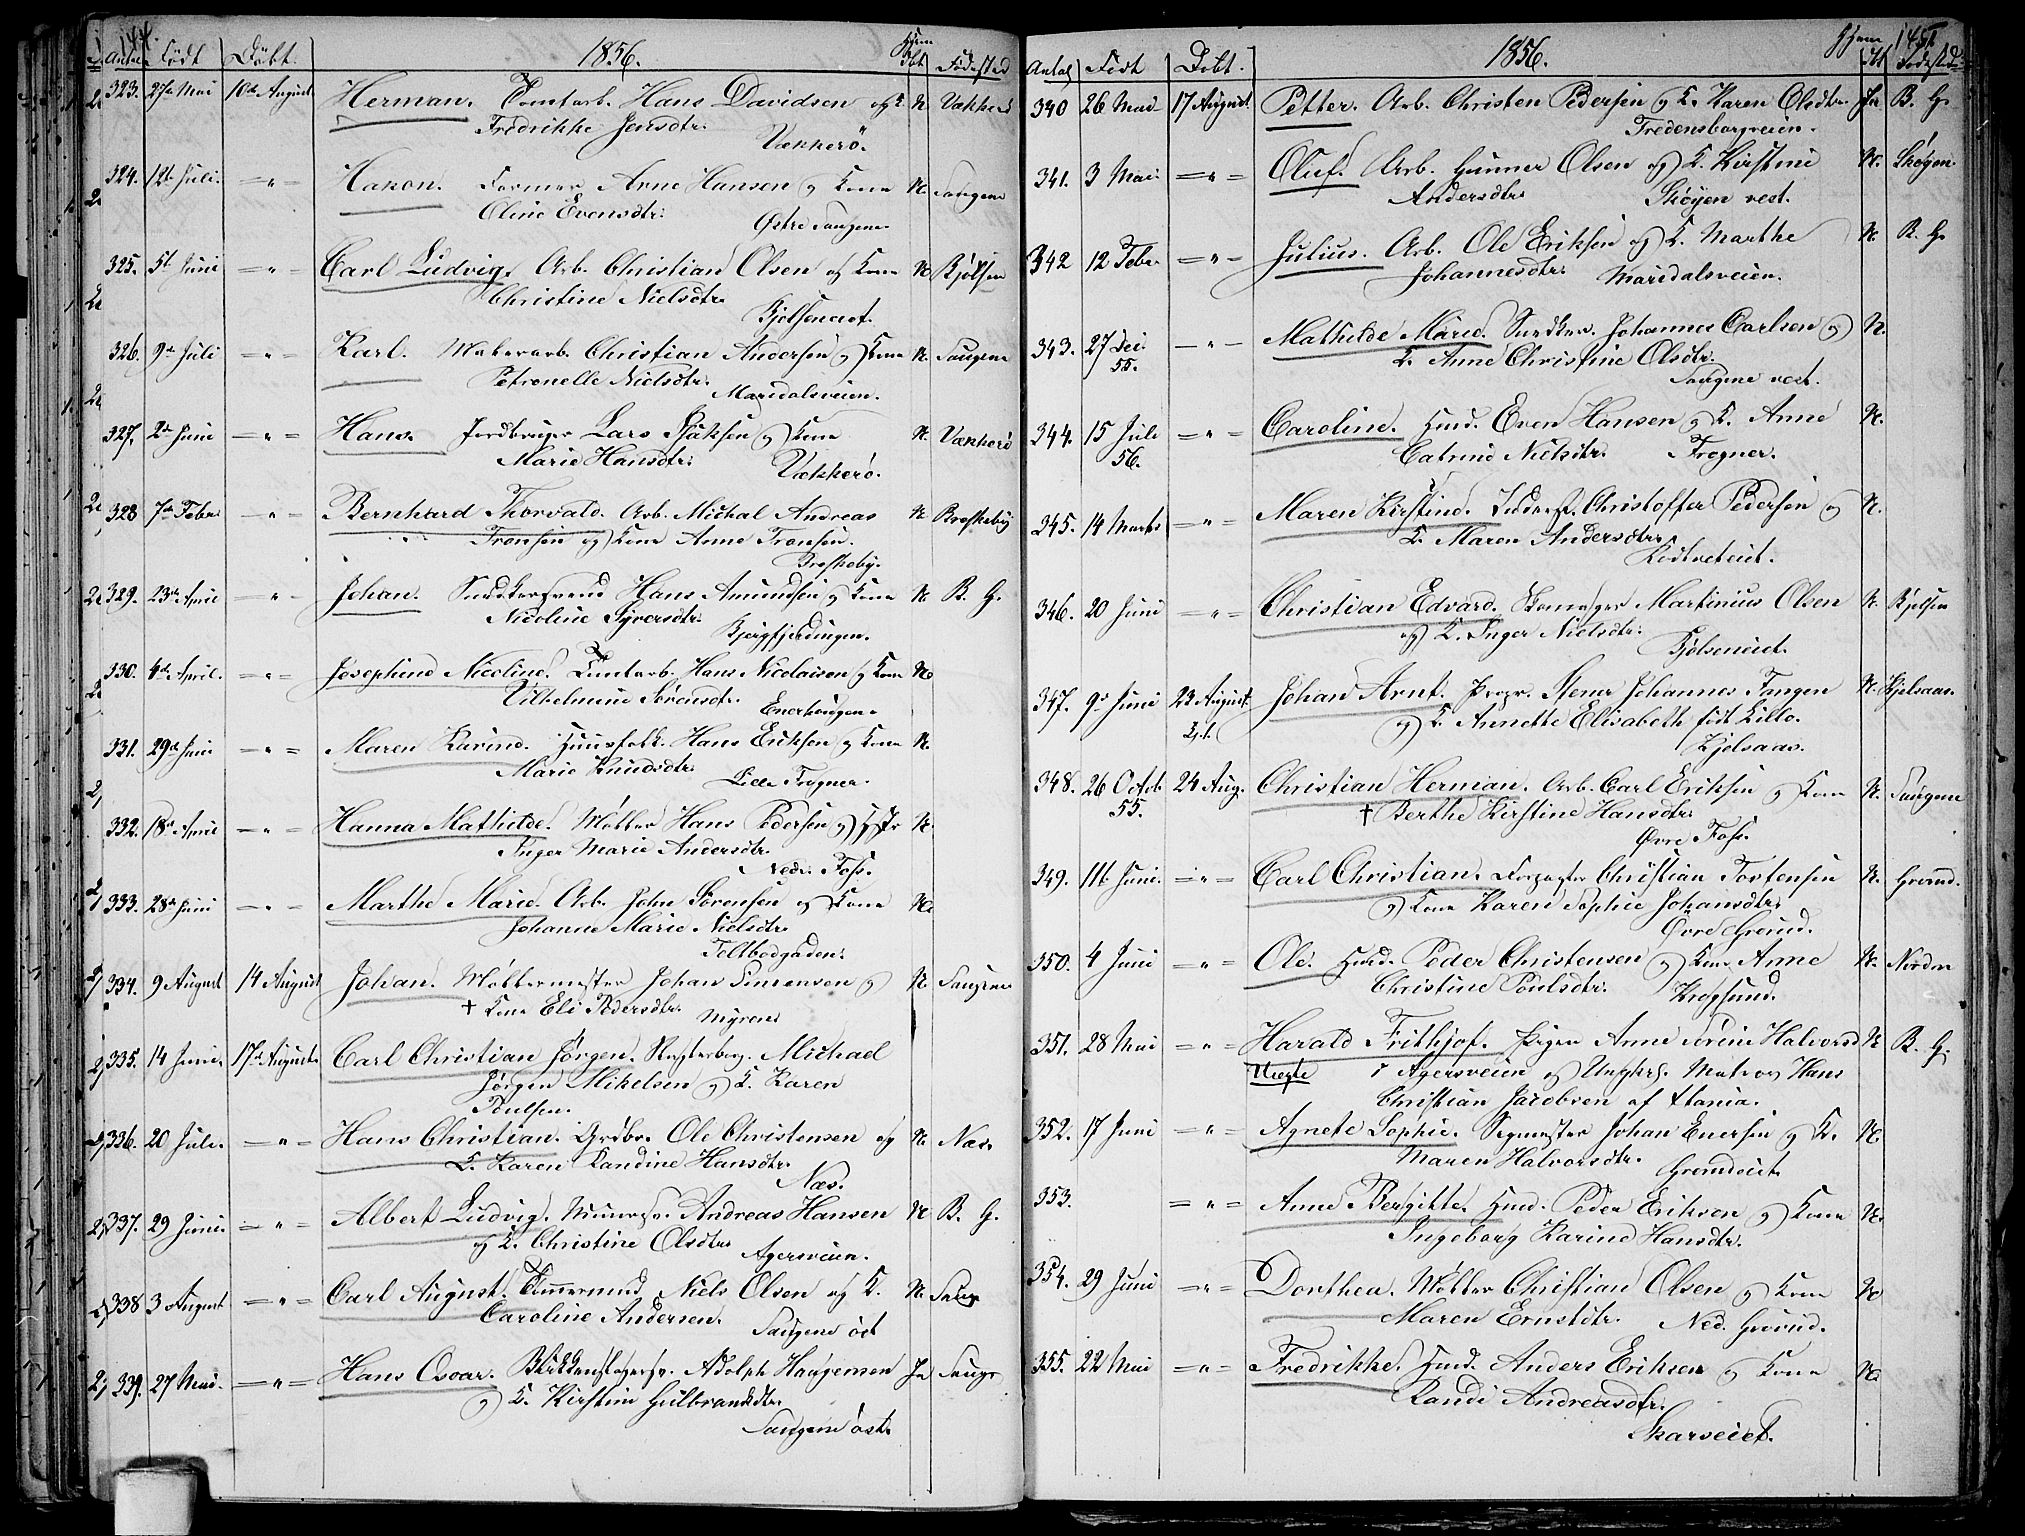 144.
Antal Født Døbt. 1856. Hjem dbt Fødested
323. 27de Mai 10de August Herman. Tomtarb. Hans Davidsen og K. N Vækkerö
Fredrikke Jensdtr.
Vækkerö.
324. 12te Juli. Hakon. Former Arne Hansen og Kone N. Saugene
Oline Evensdtr.
Østre Saugene.
325. 5te Juni Carl Ludvig. Arb. Christian Olsen og Kone N Bjølsen
Christine Nielsdtr.
Bjølseneiet.
326. 9de Juli Karl. Christian Andersen og Kone N. Saugene
Petronelle Nielsdtr.
Maridalsveien.
327. 2de Juni Hans. Jordbruger Lars Isaksen og Kone N. Vækkerö
Marie Hansdtr.
Vækkerø.
328 7de Febr. Bernhard Thorvald. Arb. Michal Andreas N Breskeby
Fransen og Kone Anne Fransen.
Breskeby.
329. 23de April Johan. Hans Amundsen og Kone N B. G.
Nicoline Syversdtr.
Bjergfjerdingen.
330. 4de April. Josephine Nicoline. Tomtarb. Hans Nicolaisen og Kone N
Vilhelmine Sørensdtr.
Enerhaugen.
331. 29de Juni Maren Karine. Huusfolk. Hans Eriksen og Kone N.
Marie Knudsdtr.
Lille Frogner.
332. 18de April Hanna Mathilde. Møller Hans Pedersen og N.
Inger Marie Andersdtr.
Nedr. Foss.
333. 28de Juni Marthe Marie. Arb. John Sørensen og Kone N.
Johanne Marie Nielsdtr.
Teltbodgaden.
334. 9 August 14 August Johan. Møllermester Johan Simensen og N. Saugene
† Kone Eli Pedersdtr. Myren
335. 14 Juni. 17de August Carl Christian Jørgen. Michael
Jörgen Mikelsen og K. Karen
Poulsen.
336. 20 Juli. Hans Christian. Grdbr. Ole Christensen og N. Næs.
K. Karen Randine Hansdtr.
Næs.
337. 29 Juni. Albert Ludvig. Andreas Hansen N B. G.
og K. Christine Olsdtr.
Agersveien.
338 3 August Carl August. Tømmermand Niels Olsen og K. N. Saug.
Caroline Andersen.
Saugene öst
339. 27 Mai. Hans Oscar. Adolph Haagensen Ja Saug.
og K. Kirstine Gulbrandsdtr.
Saugene öst.
145.
Antal Født Døbt. 1856. Hjem dbt Fødested.
340 26 Mai 17 August Petter. Arb. Christen Pedersen og K. Karen Olsdtr. Ja B. G.
Fredensborgveien.
341. 3 Mai Oluf. Arb. Gunner Olsen og K. Kirstine N. Skøyen
Andersdtr. Skøyen vest.
342 12 Febr. Julius. Arb. Ole Eriksen og K. Marthe N. B. G.
Johannesdtr. Maridalsveien.
343. 27 Dec. 55. Mathilde Marie. Snedker. Johannes Carlsen og N.
K. Anne Christine Olsdtr.
Saugene vest.
344. 15 Juli 56. Caroline. Husd. Even Hansen og K. Anne N.
Catrine Nielsdtr. Frogner.
345. 14 Marts Maren Kirstine. Inderst. Christoffer Pedersen og N.
K. Maren Andersdtr.
Rødtveteiet.
346. 20 Juni Christian Edvard. Skomager Martinius Olsen N. Bjølsen
og K. Inger Nielsdtr.
Bjølseneiet.
347. 9de Juni 23 August Johan Arnt. Stener Johannes Tangen N. Kjelsaas
og K. Annette Elisabeth født Lillo.
Kjelsaas.
348. 26 Octob 55. 24 Aug. Christian Herman. Arb. Carl Eriksen og Kone N. Saugene
† Berthe Kirstine Hansdtr.
Øvre Foss.
349. 11te Juni. Carl Christian. Forpagter Christian Torstensen N. Grorud.
og Kone Karen Sophie Johansdtr.
Øvre Grorud.
350. 4 Juni Ole. Husd. Peder Christensen og Kone Anne N. Nordre
Christine Poulsdtr. Krogsund.
351. 28 Mai Harald Frithjof. Pigen Anne Sørine Halvorsd N B. G.
Uægte i Agersveien og Ungkrl. Matros Hans
Christian Jacobsen af Stania.
352. 17 Juni Agnete Sophie. Segmester Johan Enersen og K. N.
Maren Halvorsdtr. Grorudeiet
353. Anne Bergitte. Husd. Peder Eriksen og Kone N.
Ingeborg Karine Hansdtr.
354. 29 Juni Dorthea. Møller Christian Olsen og Kone N.
Maren Ernstdtr. Ned. Grorud.
355. 22 Mai Fredrikke. Husd. Anders Eriksen og Kone N.
Randi Andreasdtr.
Skarveiet.